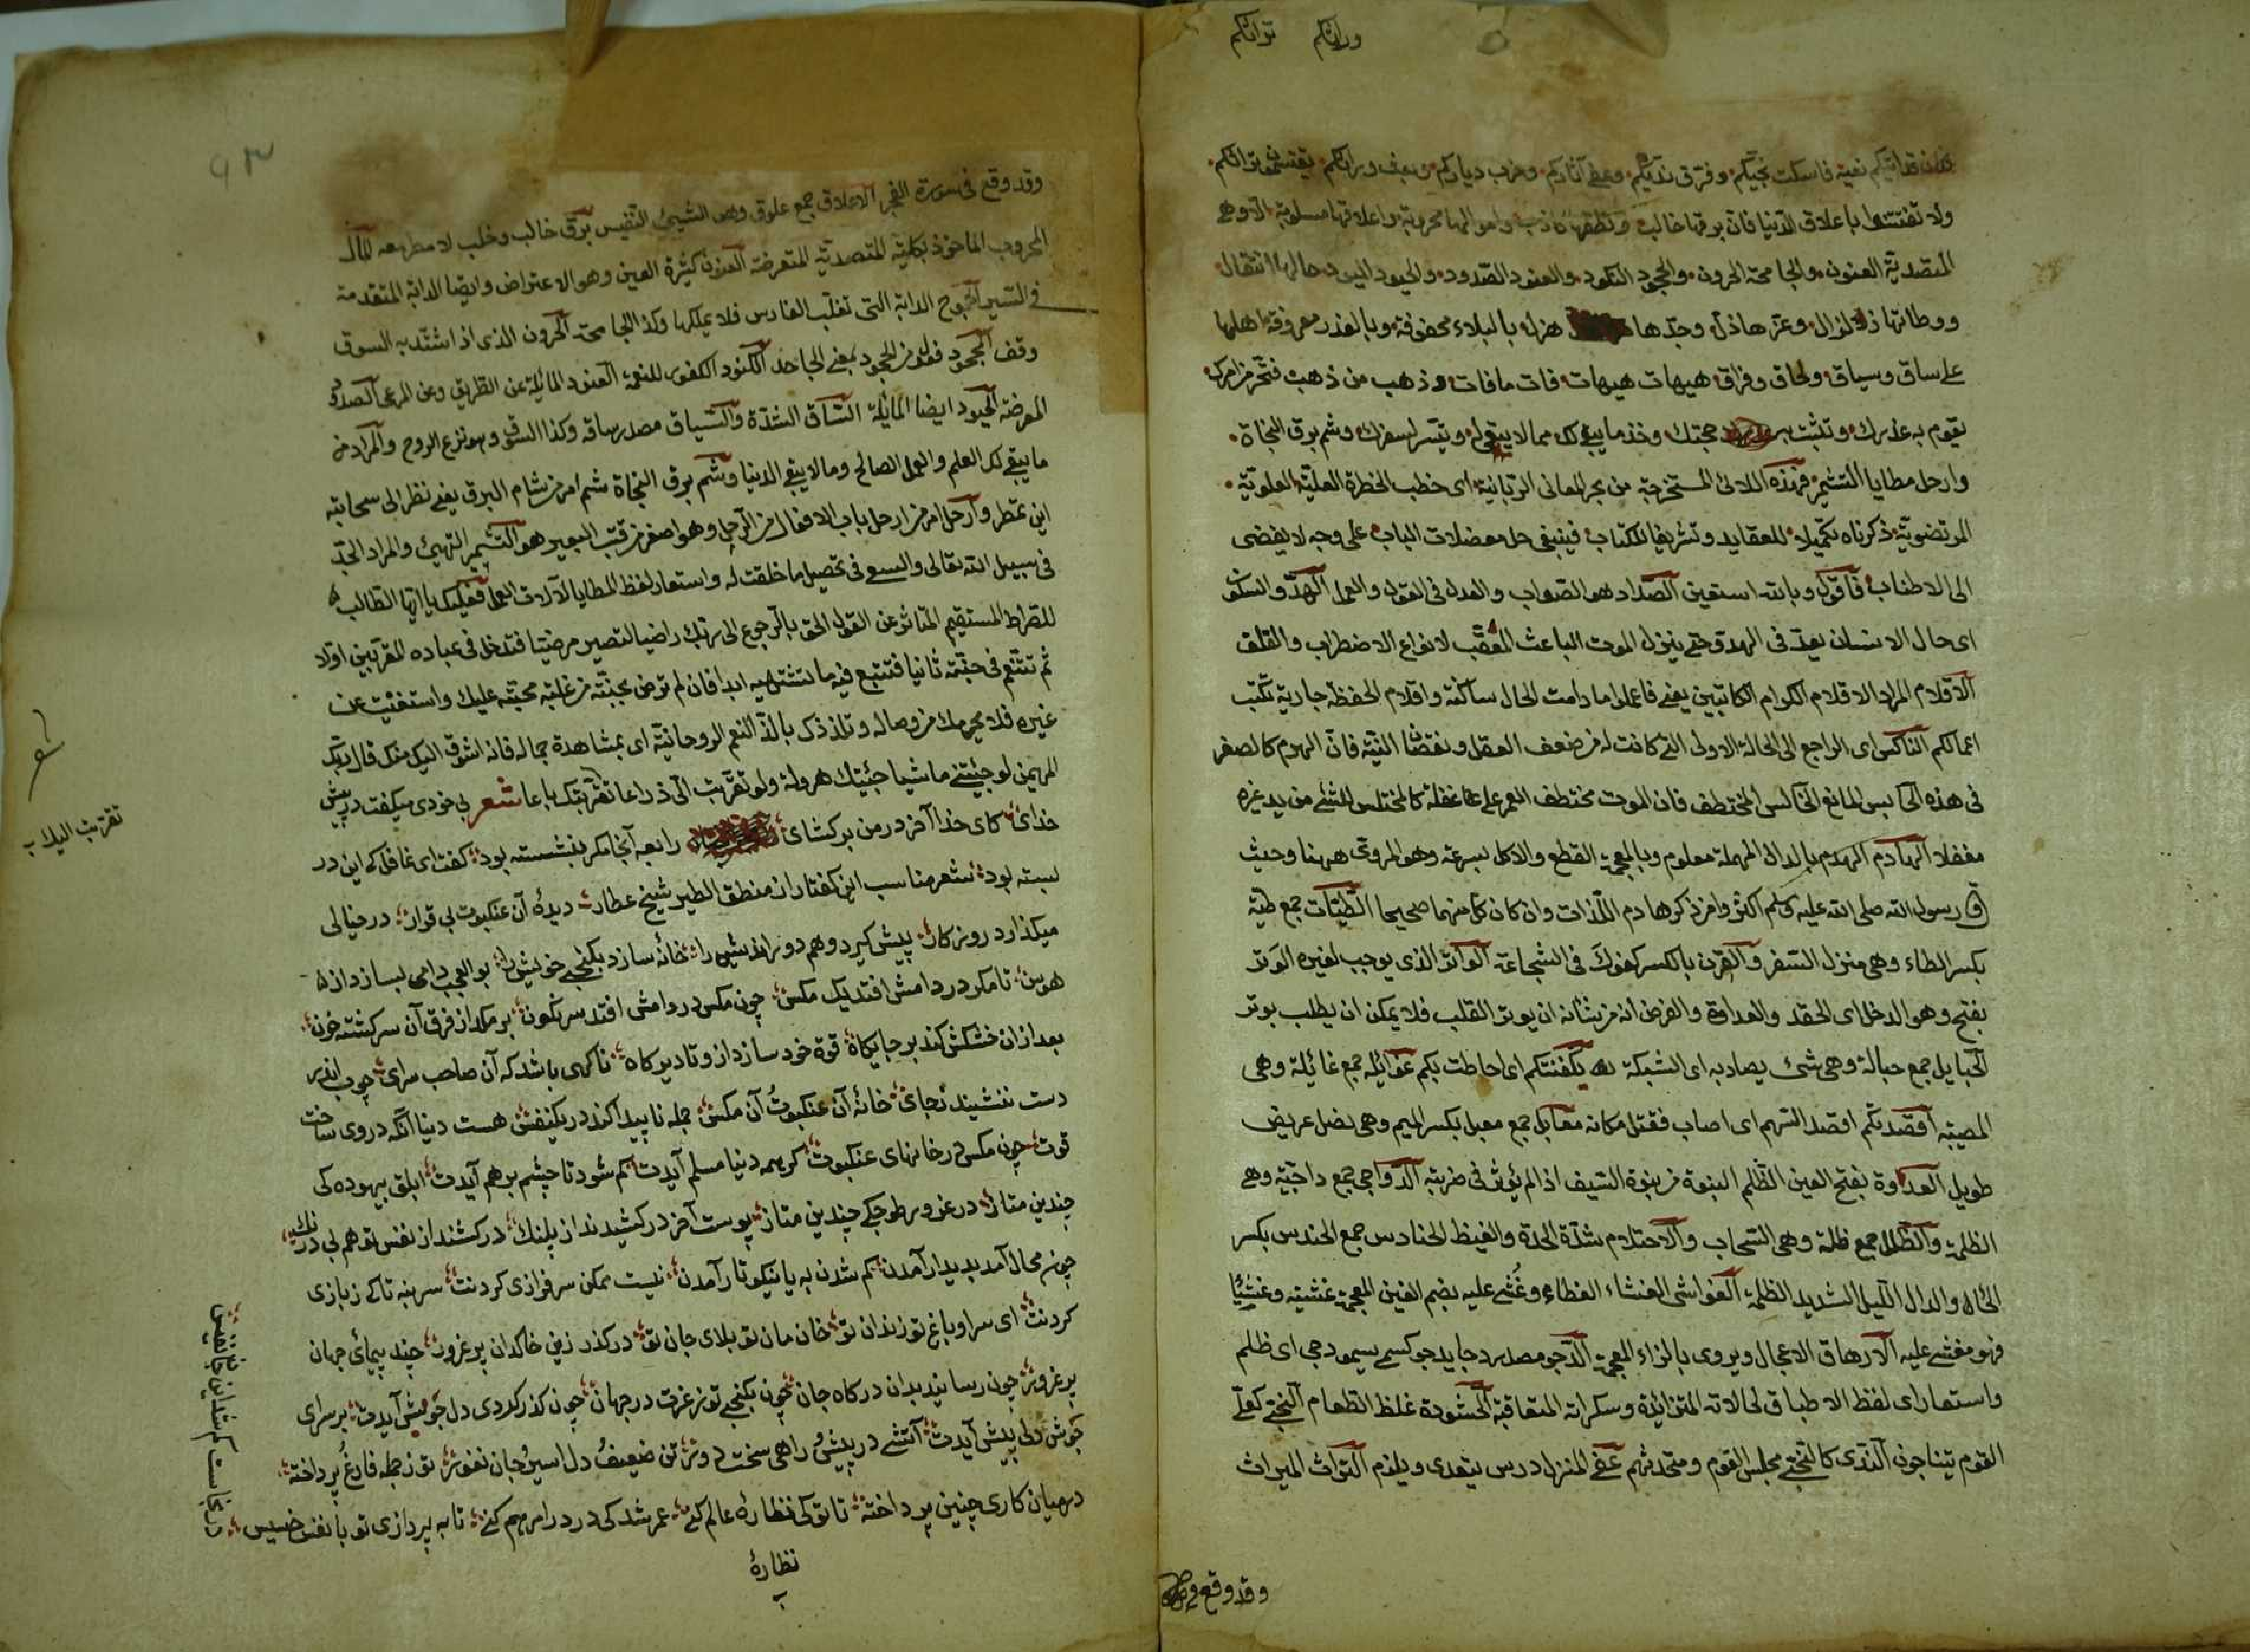 وراثكم تراثكم
فكان قد اتيكم بغتة فاسكت نجيّكم وفرق نديّكم وعفى آثاركم وخرب دياركم وبعث وراثكم يقتسمون تراثكم
ولا تفتتنوا باعلاق الدنيا فان برقها خالب ونطقها كاذب واموالها محروبة واعلاقها مسلوبة الا وهي
المتصدية العنون والجامحة الحرون والجحود الكنود والعنود الصدود والحيود الميود حالها انتقال
ووطاتها زلزال وعزها ذل وجدها هزل بالبلاء محفوفة وبالغدر معروفة اهلها
على ساق وسياق ولحاق وفراق هيهات هيهات فات ما فات وذهب من ذهب فتحر من امرك
يقوم به عذرك وتثبت به حجتك وخذ ما يبقى لك مما لا يبقى له وتيسر لسفرك وشم برق النجاة
وارحل مطايا التشمير فهذه اللآلئ المستخرجة من بحر المعاني الربانية اى خطب الخطرة العلية العلوية
المرتضوية ذكرناه تكميلا للعقايد وتشريفا للكتاب فينبغى حل معضلات الباب على وجه لا يفضى
الى الاطناب فاقول وبالله استعين السداد هو الصواب والعدل فى القول والعمل الهدو والسكون
اى حال الانسان بعد فى الهدو حتى ينزل الموت الباعث المعقب لانواع الاضطراب والقلق
الاقلام المراد الاقلام الكرام الكاتبين يعنى فاعملوا ما دامت الحال ساكنة واقلام الحفظة جارية تكتب
اعمالكم الناكس اى الراجع الى الحالة الاولى التى كانت له من ضعف العقل ونقصان النية فان الهرم كالصغر
فى هذه الحابس المانع الخالس المختطف فان الموت مختطف العمر على غفلة كالمختلس للشئ من يد غيره
مغفلا الهادم الهدم بالدال المهملة معلوم وبالمعجمة القطع والاكل بسرعة وهو المروى ههنا وحيث
قال رسول الله صلى الله عليه وسلم اكثروا من ذكر هادم اللذات وان كان كل منهما صحيحا الطيات جمع طية
بكسر الطاء وهى منزل السفر والقرن بالكسر كفوك فى الشجاعة الواتر الذى يوجب لغيره الوتر
بفتح وهو الدخل اى الحقد والعداوة والغرض انه من شانه ان يوتر القلب فلا يمكن ان يطلب بوتر
الحبايل جمع حبالة وهى شئ يصاد به اى الشبكة تكنفتكم اى احاطت بكم غوائله جمع غائلة وهى
المصيبة اقصدتكم اقصد السهم اى اصاب فقتل مكانه معابل جمع معبل بكسر الميم وهى نصل عريض
طويل العدوة بفتح العين الظلم النبوة من نبوة السيف اذا لم يؤثر فى ضريبته الدواجى جمع داجية وهى
الظلمة والظلل جمع ظلة وهى السحاب والاحتدام شدة الحدة والغيظ الحنادس جمع الحندس بكسر
الحاء والدال الليل الشديد الظلمة الغواشى الغشاء الغطاء وغُشى عليه بضم الغين المعجمة غشية وغشيًا
فهو مغشى عليه الارهاق الاعجال ويروى بالزاء المعجمة الدجو مصدر دجا يدجو كسمى يسمو دجى اى ظلم
واستعار اى لفظ الاطباق لحالاته المتزائدة وسكراته المتعاقبة الجشوبة غلظ الطعام النجى كعلى
القوم يتناجون الندى كالنجى مجلس القوم ومتحدثهم عفى المنزل درس يتعدى ويلزم التراث الميراث
وقد وقع
٩٣
وقد وقع فى سورة الفجر الاعلاق جمع علوق وهى الشيئ النفيس برق خالب وخلب لا مطر معه المال
المحروب الماخوذ بكليته المتصدية المتعرضة العنون كثيرة العين وهو الاعتراض وايضا الدابة المتقدمة
فى السير الجموح الدابة التى تغلب الفارس فلا يملكها وكذا الجامحة الحرون الذى اذا اشتد به السوق
وقف الجحود فعول من الجحود بمعنى الجاحد الكنود الكفور للنعمة العنود المائلة عن الطريق وعن المرعى الصدود
المعرضة الحيود ايضا المائلة الساق الشدة والسياق مصدر ساقه وكذا السوق وهو نزع الروح والمراد من
ما يبقى لك العلم والعمل الصالح وما لا يبقى الدنيا وشم برق النجاة شم امر من شام البرق يعنى نظر الى سحابته
اين تمطر وارحل امر من ارحل باب الافعال من الرحل وهو اصغر من قتب البعير هو التشمير التهيئ والمراد الجد
فى سبيل الله تعالى والسعى فى تحصيل ما خلقت له واستعار لفظ المطايا لآلات العمل فعليك يا ايها الطالب
للصراط المستقيم المتاثر عن القول الحق بالرجوع الى ربك راضيا لتصير مرضيا فتدخل فى عباده المقربين اولا
ثم تتنعم فى جنته ثانيا فتتبع فيه ما تشتهيه ابدا فان لم ترض بجنته من غلبة محبته عليك واستغنيت عن
غيره فلا يحرمك من وصاله وتلذذك بالذ النعم الروحانية اى بمشاهدة جماله فانه اشوق اليك منك قال ربك
المهيمن لو جئتنى ماشيا جئتك هرولة ولو تقربت الى ذراعا تقربتك باعا شعر بى خودى ميكفت در پيش
خداى كاى خدا آخر درى بر من كشاى رابعه آنجا مكر بنشسته بود كفت اى غافل كه اين در
بسته بود شعر مناسب اين كفتار از منطق الطير شيخ عطار ديدهٔ آن عنكبوت بى قرار در خيالى
ميكذارد روزكار پيش كيرد وهم دور انديش را خانهٔ سازد بكنجى خويش را بو العجب دامى بسازد از
هوس تا مكر در دامش افتد يك مكس چون مكس در دامش افتد سرنكون بر مكد از فرق آن سركشته خون
بعد ازان خشكش كند بر جايكاه قوة خود سازد ازو تا ديركاه ناكهى باشد كه آن صاحب سراى چوب اندر
دست ننشيند بجاى خانهٔ آن عنكبوت آن مكس جمله ناپيدا كند در يكنفس هست دنيا آنكه در وى ساخت
قوت چون مكس در خانهاى عنكبوت كر همه دنيا مسلم آيدت كم شود تا چشم بر هم آيدت ابلق بيهوده كى
چندين متاز در غرور چندين متاز پوست آخر در كشيدند از پلنك در كشند از نفس تو هم بى درنك
چون محال آمد پديدار آمدن كم شدن به يا نكونسار آمدن نيست ممكن سرفرازى كردنت سر بنه تا كى ز بازى
كردنت اى سرا و باغ تو زندان تو خان مان تو بلاى جان تو در كذر زين خاكدان پر غرور چند پيمائى جهان
پر غرور چون رسانيد بدان دركاه جان چون بكنجى تو ز عزت در جهان چون كذر كردى دل خويش آيدت بر سراى
خوش دلى پيش آيدت آتشى در پيش و راهى سخت دور تن ضعيف دل اسير و جان نفور تو ز جمله فارغ پرداخته
در ميان كارى چنين پرداخته تا تو كى نظارهٔ عالم كنى عمر شد كى درد را مرهم كنى تا به پردازى تو با نفس خسيس
تقربت اليك ب
نظارهٔ